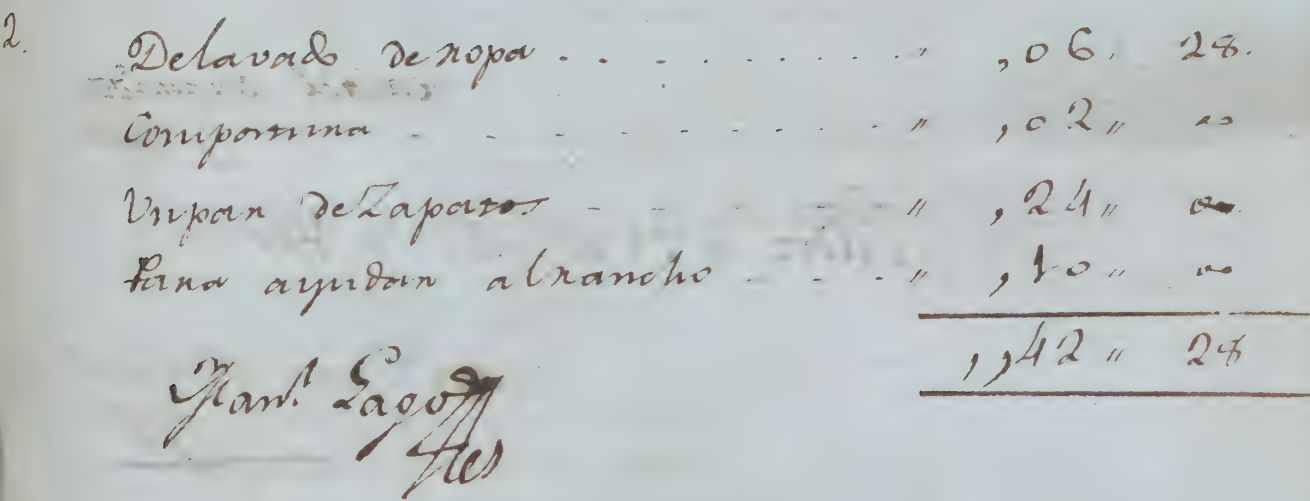 2.
De lavado de ropa . . . . . . . . . . " ,06, 28.
Compostura - - - - - - - - - - " ,02 " oo
Un par de Zapatos - - - - - - - " ,24 " oo
Para ayudar al rancho - - - - " ,10 " oo
,,42 " 28
Man.l Lago